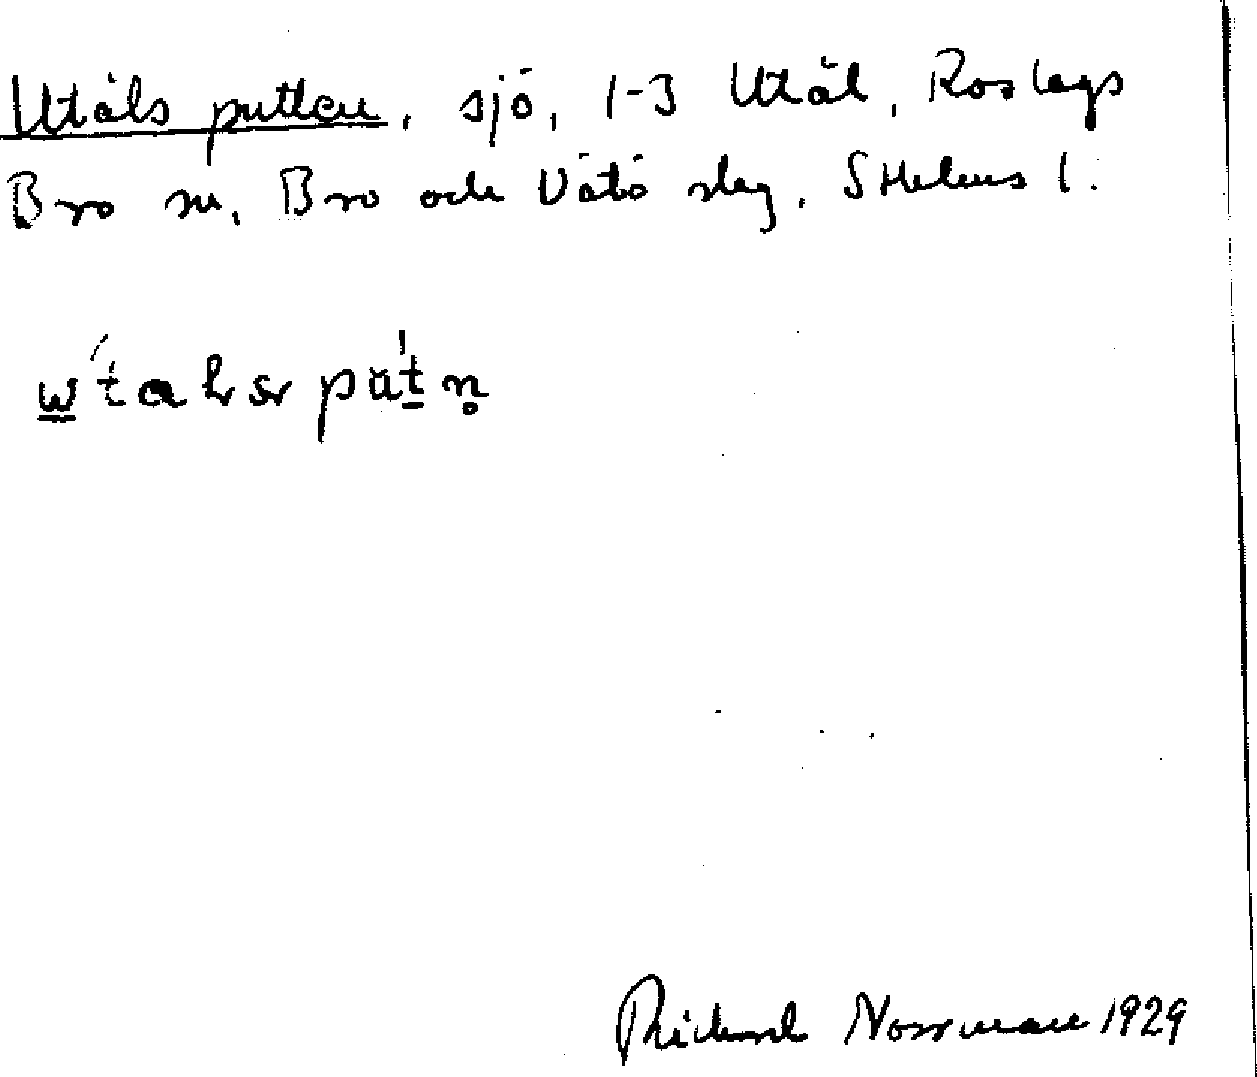 Utåls putten, sjö, 1-3 Utål, Roslags
Bro sn, Bro och Vätö slag, Sthlms l.
Richard Norrman 1929